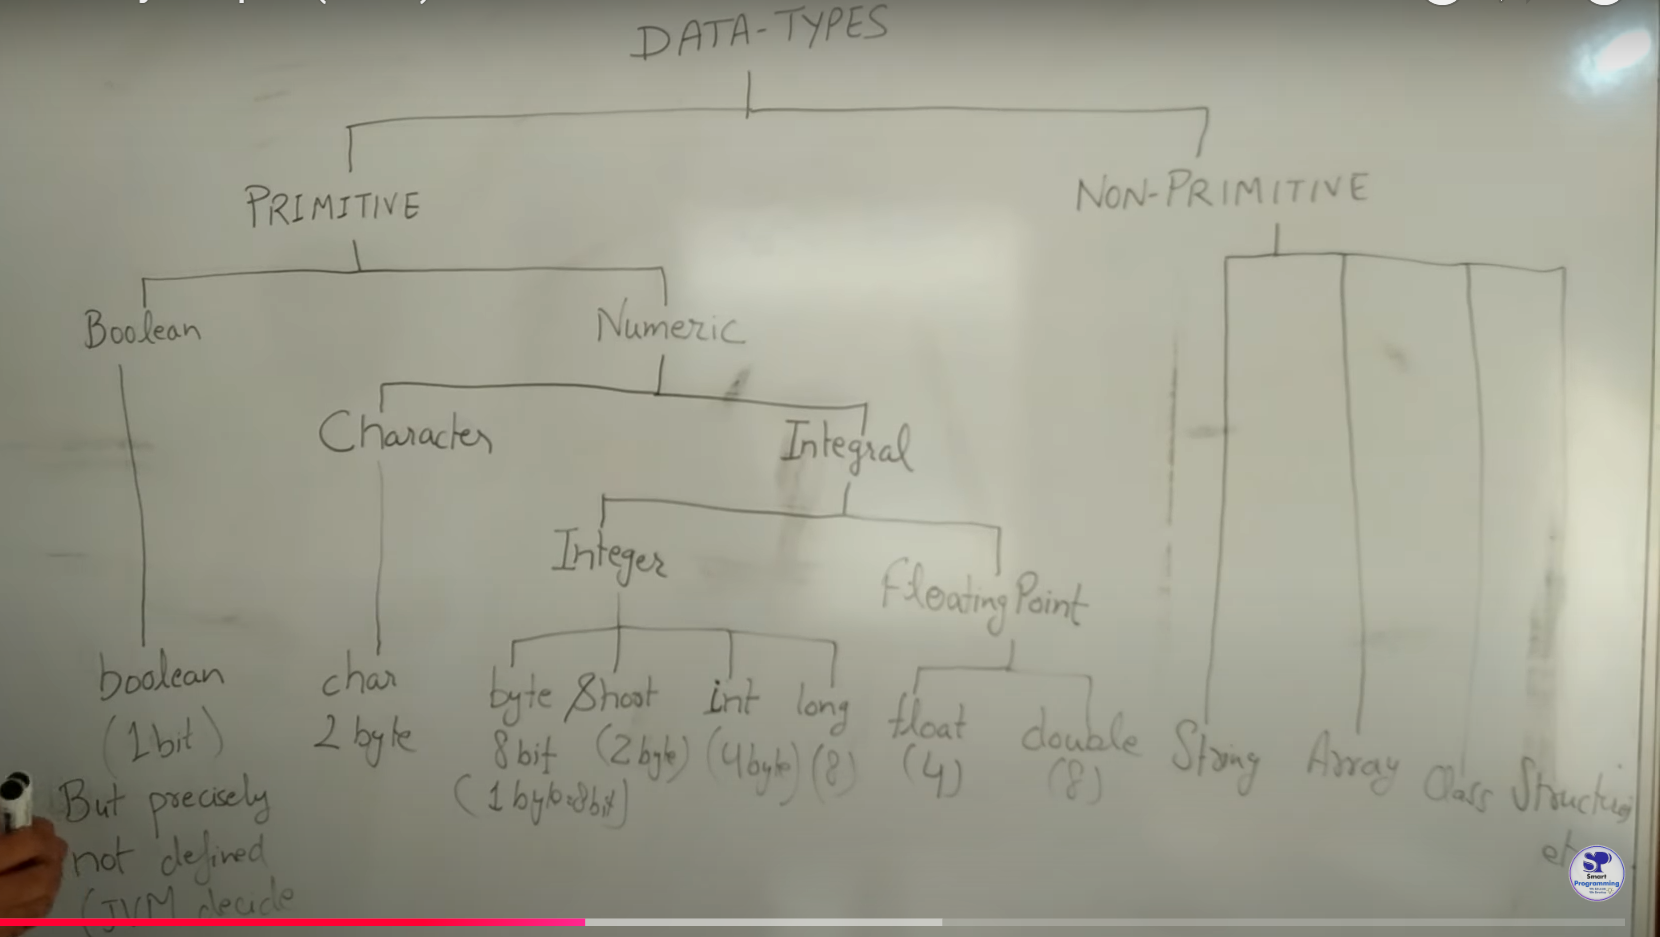 DATA-TYPES
PRIMITIVE
NON-PRIMITIVE
Boolean
Numeric
Character
Integral
Integer
Floating Point
boolean
(1 bit)
But precisely
not defined
(JVM decide
char
2 byte
byte
8 bit
(1 byte=8bit)
Short
(2 byte)
int
(4 byte)
long
(8)
float
(4)
double
(8)
String
Array
Class
SP
Smart
Programming